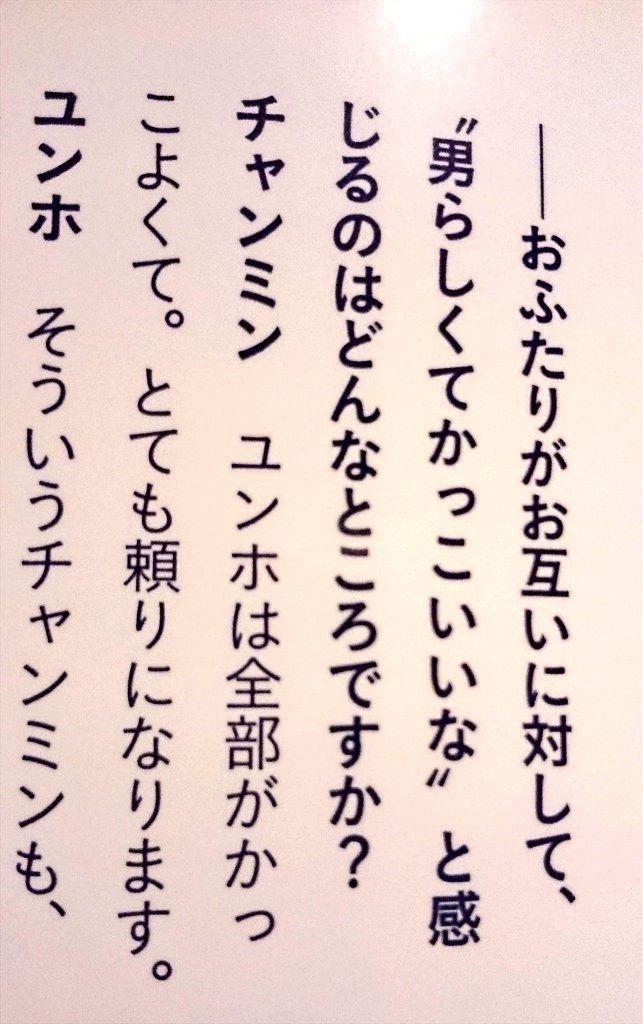 ──おふたりがお互いに対して、
〝男らしくてかっこいいな〟と感
じるのはどんなところですか?
チャンミン　ユンホは全部がかっ
こよくて。とても頼りになります。
ユンホ　そういうチャンミンも、